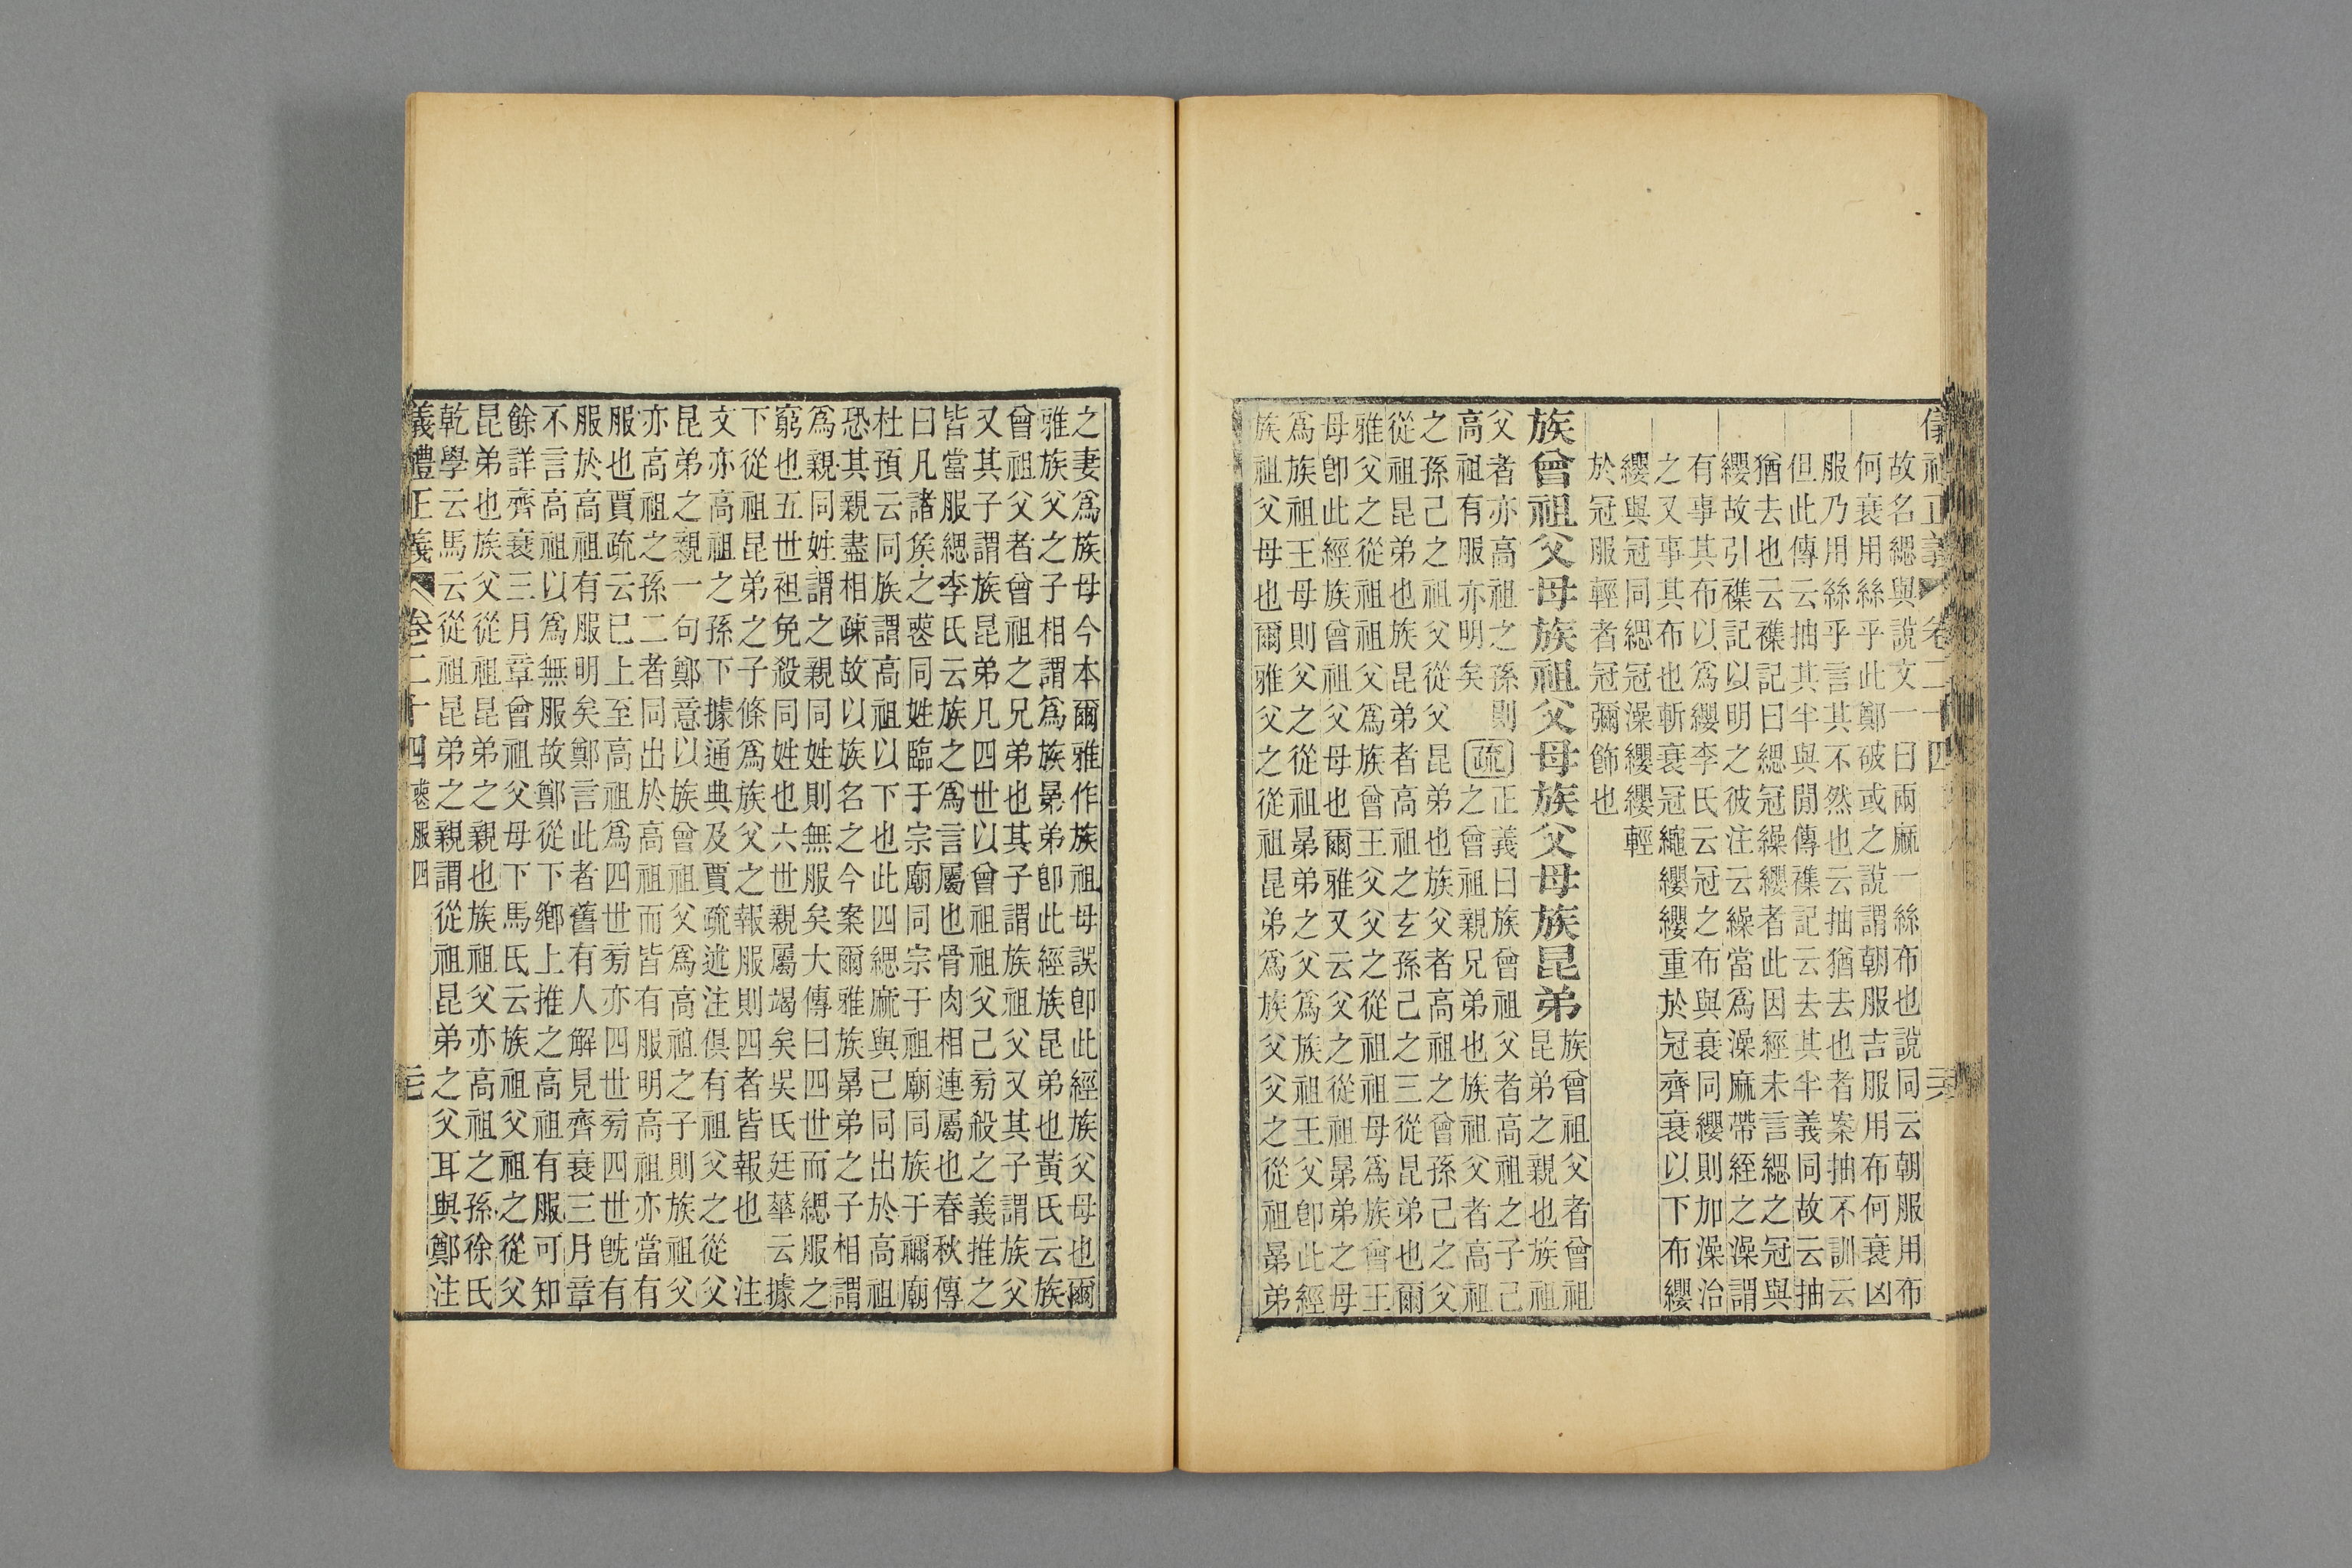 儀禮正義 卷二十四
故名緦與說文一曰兩麻一絲布也說同云朝服用布
何衰用絲乎此鄭破或之說謂朝服吉服用布何衰凶
服乃用絲乎言其不然也云抽猶去也者案抽不訓云
但此傳云抽其半與閒傳襍記云去其半義同故云抽
猶去也云襍記曰緦冠繰纓者此因經未言緦之冠與
纓故引襍記以明之彼注云繰當爲澡麻帶絰之澡謂
有事其布以爲纓李氏云冠之布與衰同纓則加澡治
之又事其布也斬衰冠繩纓纓重於冠齊衰以下布纓
纓與冠同緦冠澡纓纓輕
於冠冠服輕者冠彌飾也
族曾祖父母族祖父母族父母族昆弟
族曾祖父者曾祖
昆弟之親也族祖
父者亦高祖之孫則
高祖有服亦明矣
疏
正義曰族曾祖父者高祖之子己
之曾祖親兄弟也族祖父者高祖
之孫己之祖父從父昆弟也族父者高祖之曾孫己之父
從祖昆弟也族昆弟者高祖之玄孫己之三從昆弟也爾
雅父之從祖祖父爲族曾王父父之從祖祖母爲族曾王
母卽此經族曾祖父母也爾雅又云父之從祖晜弟之母
爲族祖王母則父之從祖晜弟之父爲族祖王父卽此經
族祖父母也爾雅父之從祖昆弟爲族父父之從祖晜弟
之妻爲族母今本爾雅作族祖母誤卽此經族父母也爾
雅族父之子相謂爲族晜弟卽此經族昆弟也黃氏云族
曾祖父者曾祖之兄弟也其子謂族祖父又其子謂族父
又其子謂族昆弟凡四世以曾祖祖父己旁殺之義推之
皆當服緦李氏云族之爲言屬也骨肉相連屬也春秋傳
曰凡諸侯之喪同姓臨于宗廟同宗于祖廟同族于禰廟
杜預云同族謂高祖以下也此四緦麻與己同出於高祖
恐其親盡相疎故以族名之今案爾雅族晜弟之子相謂
爲親同姓謂之親同姓則無服矣大傳曰四世而緦服之
窮也五世祖免殺同姓也六世親屬竭矣吳氏廷華云據
下從祖昆弟之子條爲族父之報服則四者皆報也 注
文亦高祖之孫下據通典及賈疏述注俱有祖父之從父
昆弟之親一句鄭意以族曾祖父爲高祖之子則族祖父
亦高祖之孫二者同出於高祖而皆有服明高祖亦當有
服也賈疏云已上至高祖爲四世旁亦四世旁四世旣有
服於高祖有服明矣鄭言此者舊有人解見齊衰三月章
不言高祖以爲無服故鄭從下鄉上推之高祖有服可知
餘詳齊衰三月章曾祖父母下馬氏云族祖父祖之從父
昆弟也族父從祖昆弟之親也族祖父亦高祖之孫徐氏
乾學云馬云從祖昆弟之親謂從祖昆弟之父耳與鄭注
義禮正義 卷二十四 喪服四